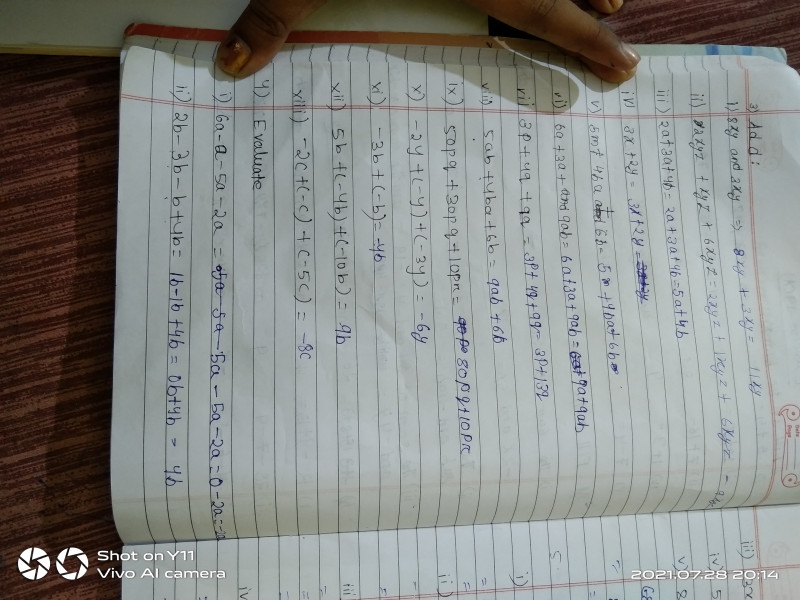 3) Add:
i) 8xy and 3xy => 8xy + 3xy = 11xy
ii) 2xyz + xyz + 6xyz = 2xyz + 1xyz + 6xyz =
iii) 2a+3a+4b = 2a+3a+4b = 5a+4b
iv) 3x+2y = 3x+2y =
v) 5m+ 4ba 6b = 5m + 4ba + 6b
vi) 6a+3a+ and 9ab = 6a+3a+9ab = 9a+9ab
vii) 3p+4q+9q = 3p+4q+9q = 3p+13q
viii) 5ab+4ba+6b = 9ab+6b
ix) 50pq+30pq+10pr = 80pq+10pr
x) -2y+(-y)+(-3y) = -6y
xi) -3b+(-b) = -4b
xii) 5b+(-4b)+(-10b) = 9b
xiii) -2c+(-c)+(-5c) = -8c
4) Evaluate
i) 6a-a-5a-2a = 5a-5a-2a = 0-2a =
ii) 2b-3b-b+4b = 1b-1b+4b = 0b+4b = 4b
iii)
iv)
v)
i)
ii)
iii
iv
Shot on Y11
Vivo AI camera
2021.07.28 20:14